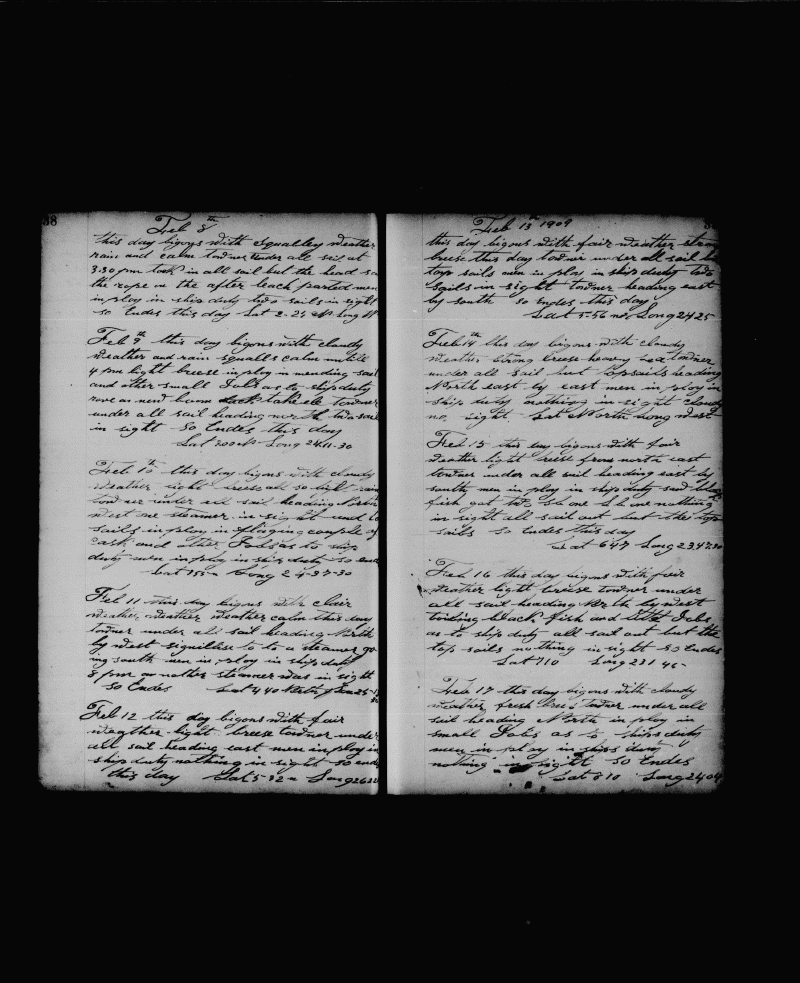 38
Feb 8th
this day bigons with Squalley weather
rain and calm towner under all sail at
3-30 pm took in all sail but the head sa
the rope on the after leach parted men
in ploy in ship duty two sails in sight
so Endes this day Lat 2-25 N Long
Feb 9th this day bigons with cloudy
weather and rain squalls calm untill
4 pm light breese in ploy in mending sail
and other small Jobs as to ship duty
rove an new boom tackle towner
under all sail heading north two sail
in sight so Endes this day
Lat 200 N Long 24-11-30
Feb 10th this day bigons with cloudy
weather light breese all so light rain
towner under all sail heading North
west one steamer in sight and to
sails in ploy in floging couple of
cask and other Jobs as to ship
duty men in ploy in ship duty so end
Lat 155 n Long 24-37-30
Feb 11 this day bigons with clair
weather weather weather calm this day
towner under all sail heading North
by west signilise to to a steamer go
ing south men in ploy in ship duty
8 pm a nother steamer was in sight
so Endes Lat 4,40 North
Feb 12 this day bigons with fair
weagther light breese towner under
all sail heading east men in ploy in
ship duty nothing in sight so end
this day Lat 5-32 n Long 26
Feb 13th 1909
this day bigons with fair weather stron
breese this day towner under all sail bu
top sails men in ploy in ship duty two
sails in sight towner heading east
by south so Endes this day
Lat 5-56 no Long 2425
Feb 14th this day bigons with cloudy
weather strong breese heavey sea towner
under all sail but topsails heading
North east by east men in ploy in
ship duty nothing in sight cloudy
no. sight. Lat North long west
Feb 15 this day bigons with fair
weather light breese from north east
towner under all sail heading east by
south men in ploy in ship duty saw black
fish got two S B one L B one nothing
in sight all sail out but the top
sails so Endes this day
Lat 647 Long 23,47,30
Feb 16 this day bigons with fair
weather light breese towner under
all sail heading North by west
black fish and Jobs
as to ship duty all sail out but the
top sails nothing in sight so Endes
Lat 710 Long 231 45-
Feb 17 this day bigons with cloudy
weather fresh breese towner under all
sail heading North in ploy in
small Jobs as to ships duty
men in ploy in ships duty
nothing in sight so Endes
Lat 810 Long 2404